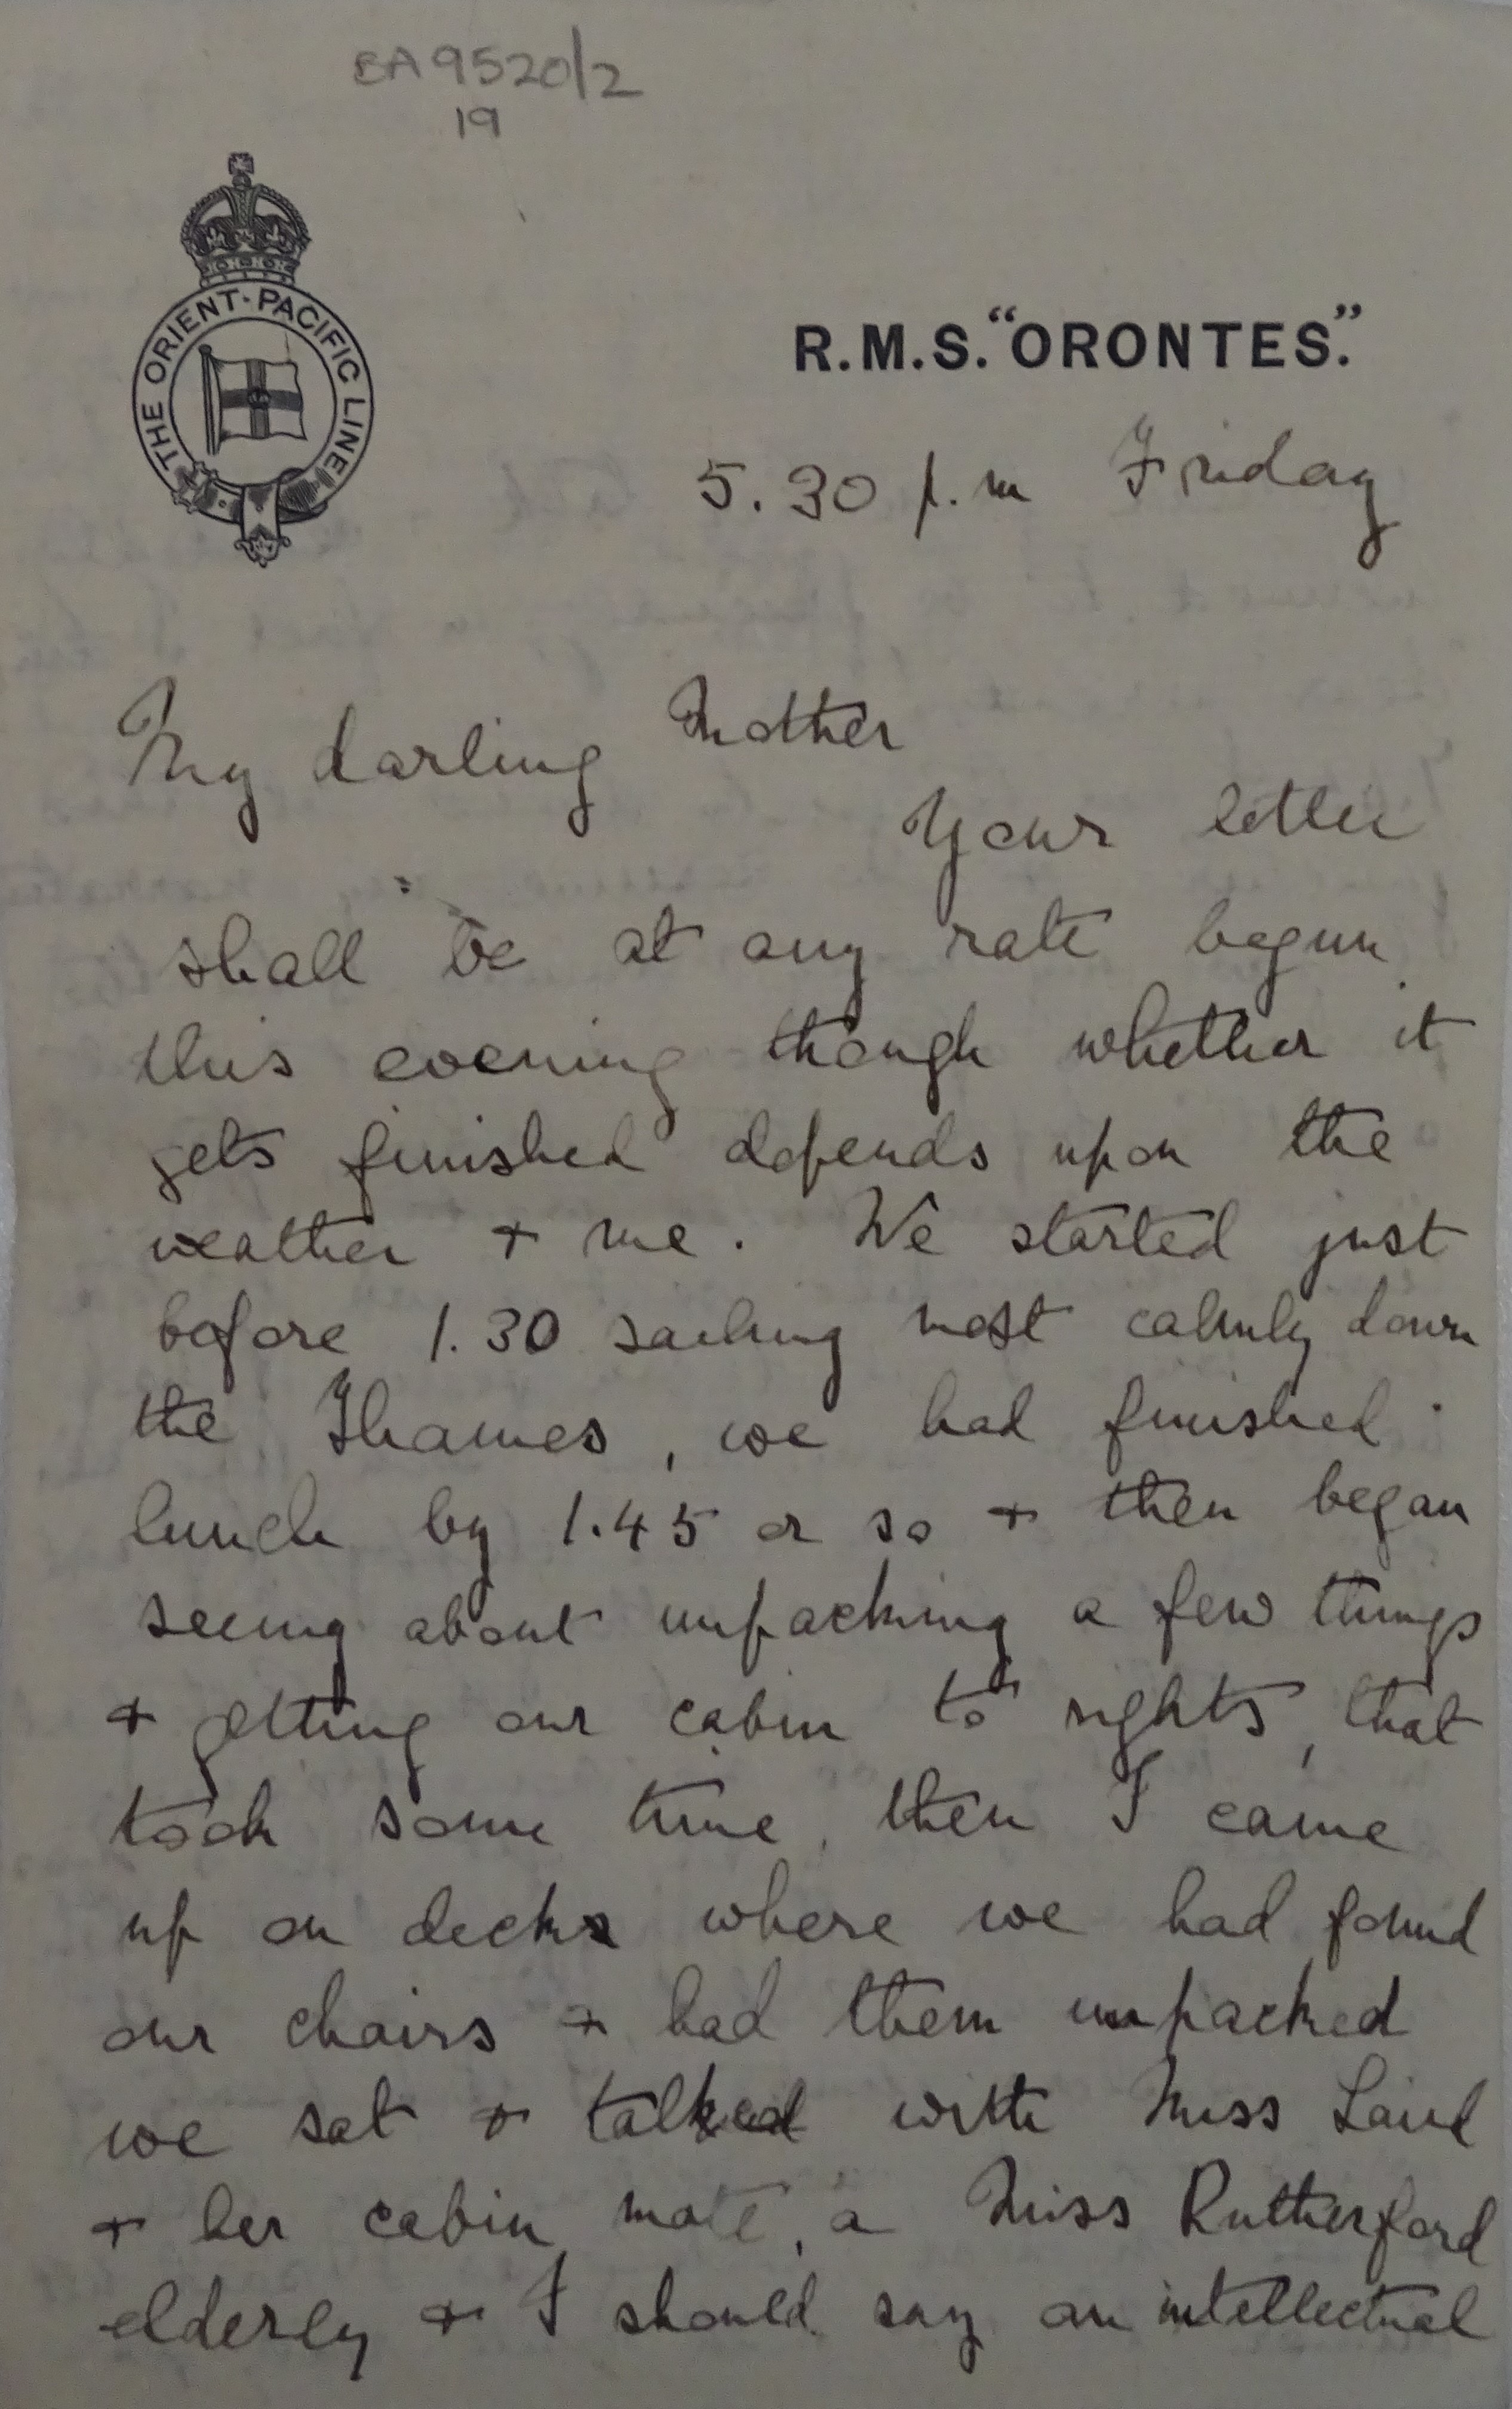 EA9520/2
19
THE ORIENT-PACIFIC LINE
R.M.S. "ORONTES."
5.30 p.m Friday
My darling Mother
Your letter
shall be at any rate begun
this evening though whether it
gets finished depends upon the
weather + me. We started just
before 1.30 sailing most calmly down
the Thames, we had finished
lunch by 1.45 or so + then began
seeing about unpacking a few things
+ getting our cabin to rights, that
took some time, then I came
up on decks where we had found
our chairs + had them unpacked
we sat + talked with Miss Laird
+ her cabin mate, a Miss Rutherford
elderly + I should say an intellectual